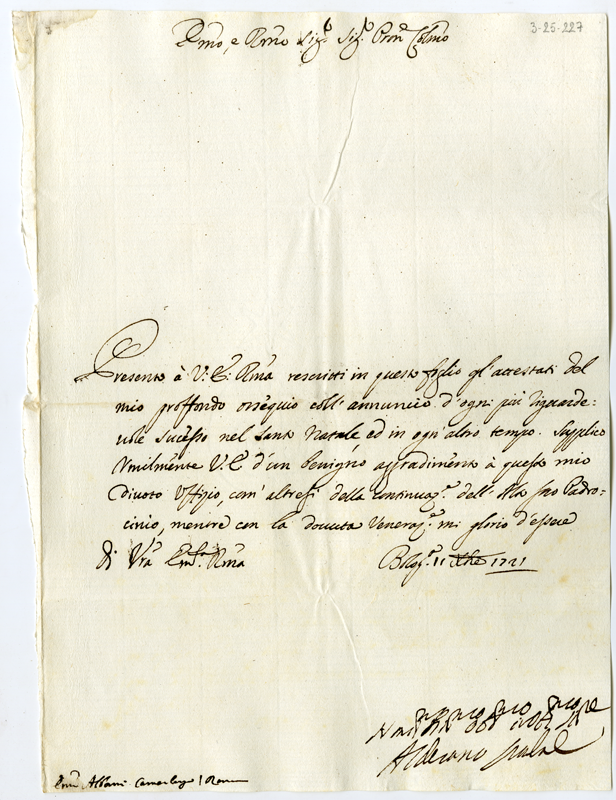 3-25-227
Emo, e Rmo Sig.r Sig.r Pron Colmo
Presento à V: E: Rma rescritti in questo foglio gl'attestati del
mio proffondo ossequio coll'annuncio d'ogni più riguarde:
uole sucesso nel Santo Natale, ed in ogn'altro tempo. Supplico
Vmilmente V: E d'un benigno aggradimento à questo mio
Diuoto Vffizio, com'altresì della continuaz.e dell'Alto suo Padro-
cinio, mentre con la douuta Veneraz.e mi glorio d'essere
di Vra Em.za Rma
Bolog.a 11 Xbre 1721
Alderano
Emo Albani Camerlengo / Roma